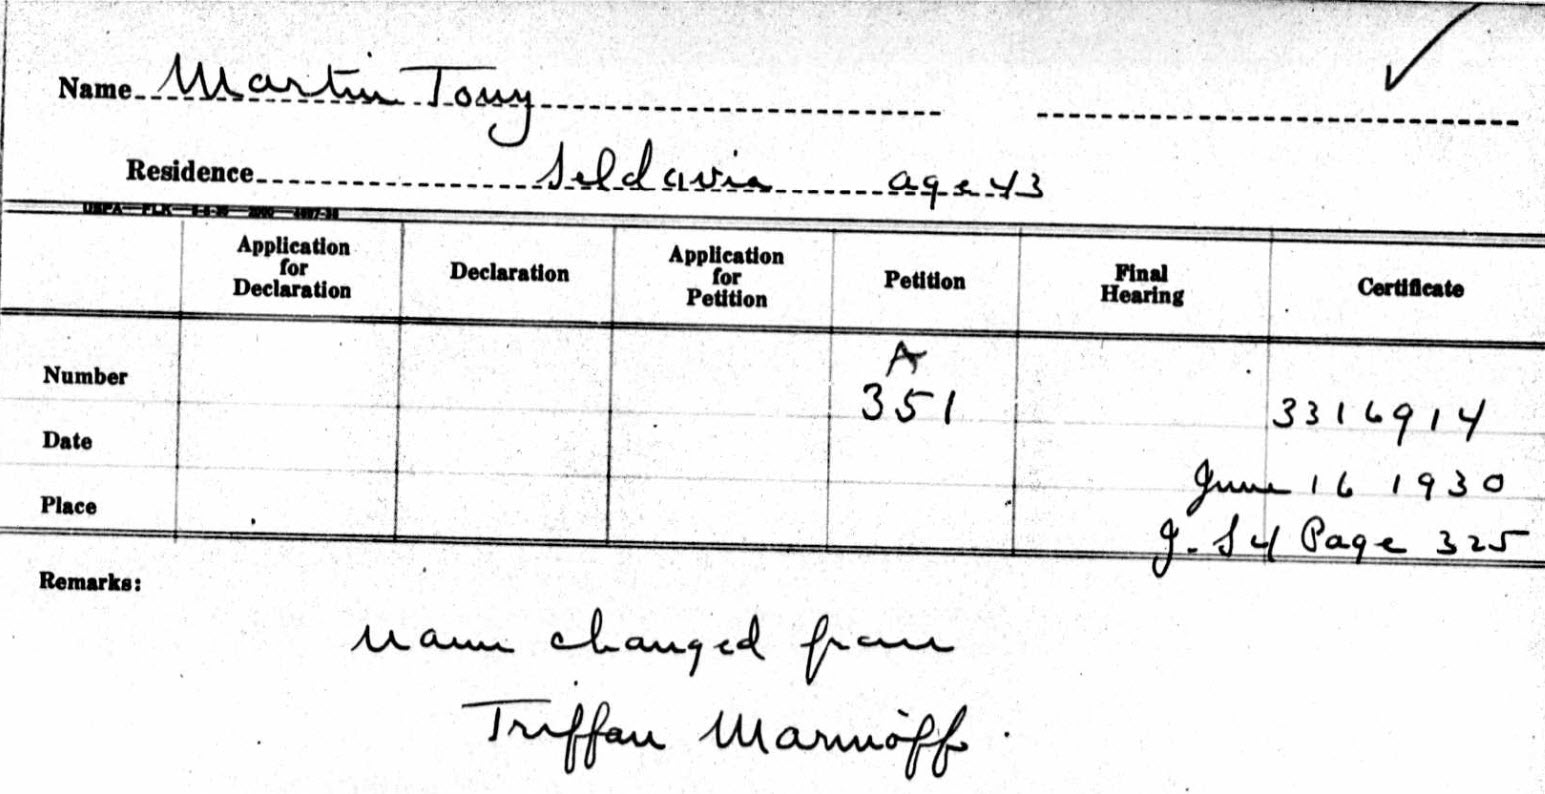 Name Martin Tony
Residence Seldavia age 43
Application for Declaration
Declaration
Application for Petition
Petition
Final Hearing
Certificate
Number A 351 3316914
Date June 16 1930
Place J. S4 Page 325
Remarks:
Name changed from
Triffan Marinoff